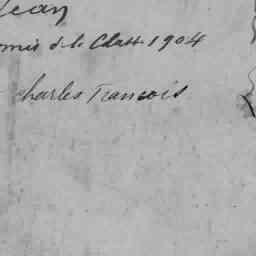 Jean
omis de la Classe 1904
Charles Francois